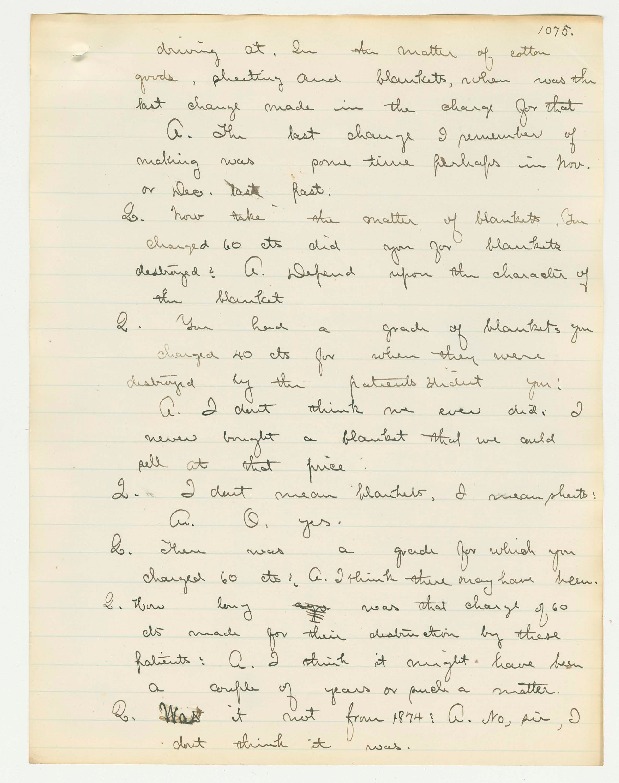 1075.
driving at. In the matter of cotton
goods, sheeting and blankets, when was the
last change made in the charge for that
A. The last change I remember of
making was some time perhaps in Nov.
or Dec. last past.
Q. Now take the matter of blankets. You
charged 60 cts did you for blankets
destroyed? A. Depend upon the character of
the blanket
Q. You had a grade of blankets you
charged 40 cts for when they were
destroyed by the patients didnt you?
A. I dont think we ever did. I
never bought a blanket that we could
sell at that price.
Q. I dont mean blankets, I mean sheets?
A. O, yes.
Q. There was a grade for which you
charged 60 cts? A. I think there may have been.
Q. How long ago was that charge of 60
cts made for their destruction by these
patients? A. I think it might have been
a couple of years or such a matter.
Q. Was it not from 1874? A. No, sir, I
dont think it was.